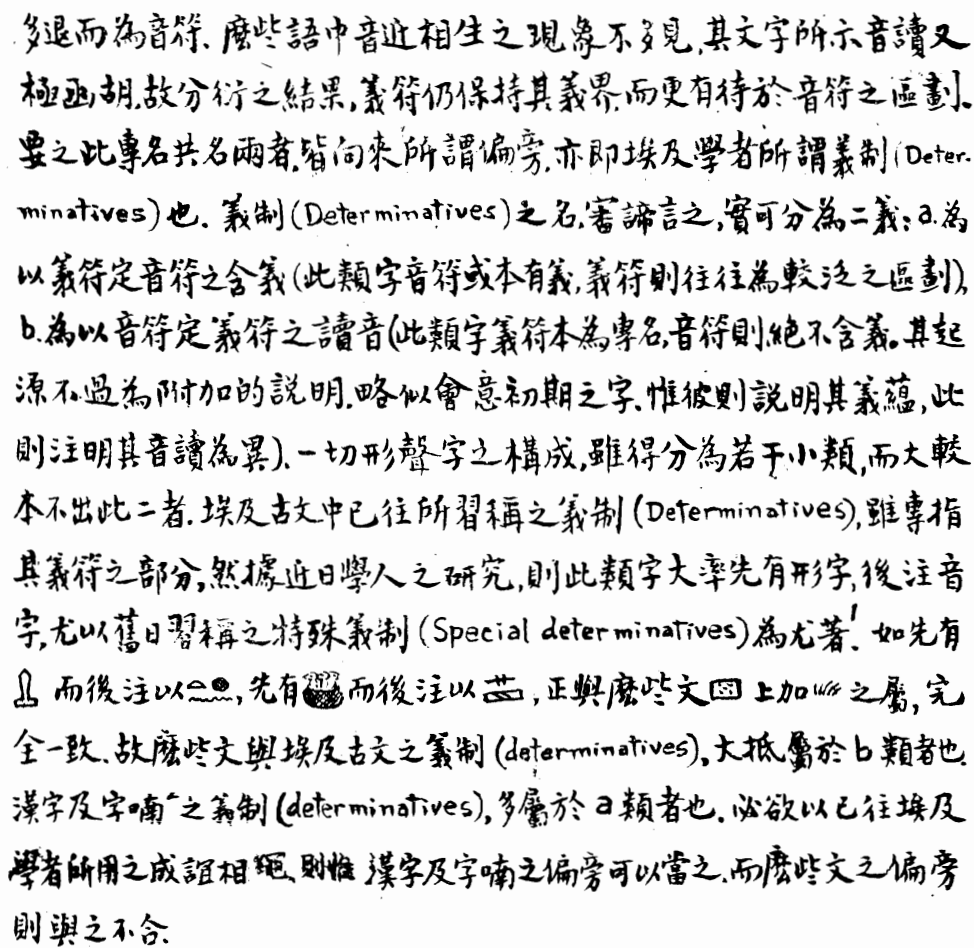 多退而為音符.麼些語中音近相生之現象不多見,其文字所示音讀又
極函胡,故分衍之結果,義符仍保持其義界,而更有待於音符之區劃。
要之此專名共名兩者,皆向來所謂偏旁,亦即埃及學者所謂義制(Deter-
minatives)也. 義制(Determinatives)之名,審諦言之,實可分為二義:a.為
以義符定音符之含義(此類字音符或本有義,義符則往往為較泛之區劃),
b.為以音符定義符之讀音(此類字義符本為專名,音符則絕不含義。其起
源不過為附加的説明.略似會意初期之字.惟彼則説明其義蘊,此
則注明其音讀為異).一切形聲字之構成,雖得分為若干小類,而大較
本不出此二者.埃及古文中已往所習稱之義制(Determinatives),雖專指
其義符之部分,然據近日學人之研究,則此類字大率先有形字,後注音
字,尤以舊日習稱之特殊義制(Special determinatives)為尤著!如先有
而後注以,先有而後注以,正與麼些文上加之屬,完
全一致.故麼些文與埃及古文之義制(determinatives),大抵屬於b類者也.
漢字及字喃之義制(determinatives),多屬於a類者也.必欲以已往埃及
學者所用之成誼相繩,則惟漢字及字喃之偏旁可以當之.而麼些文之偏旁
則與之不合.